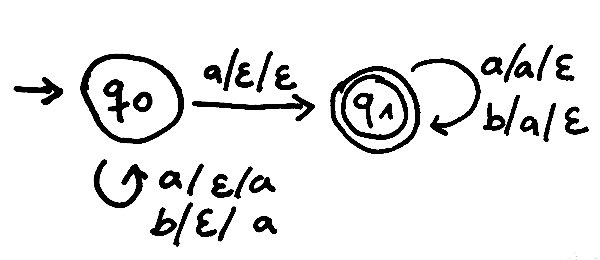 q0
a/ε/ε
q1
a/a/ε
b/a/ε
a/ε/a
b/ε/a